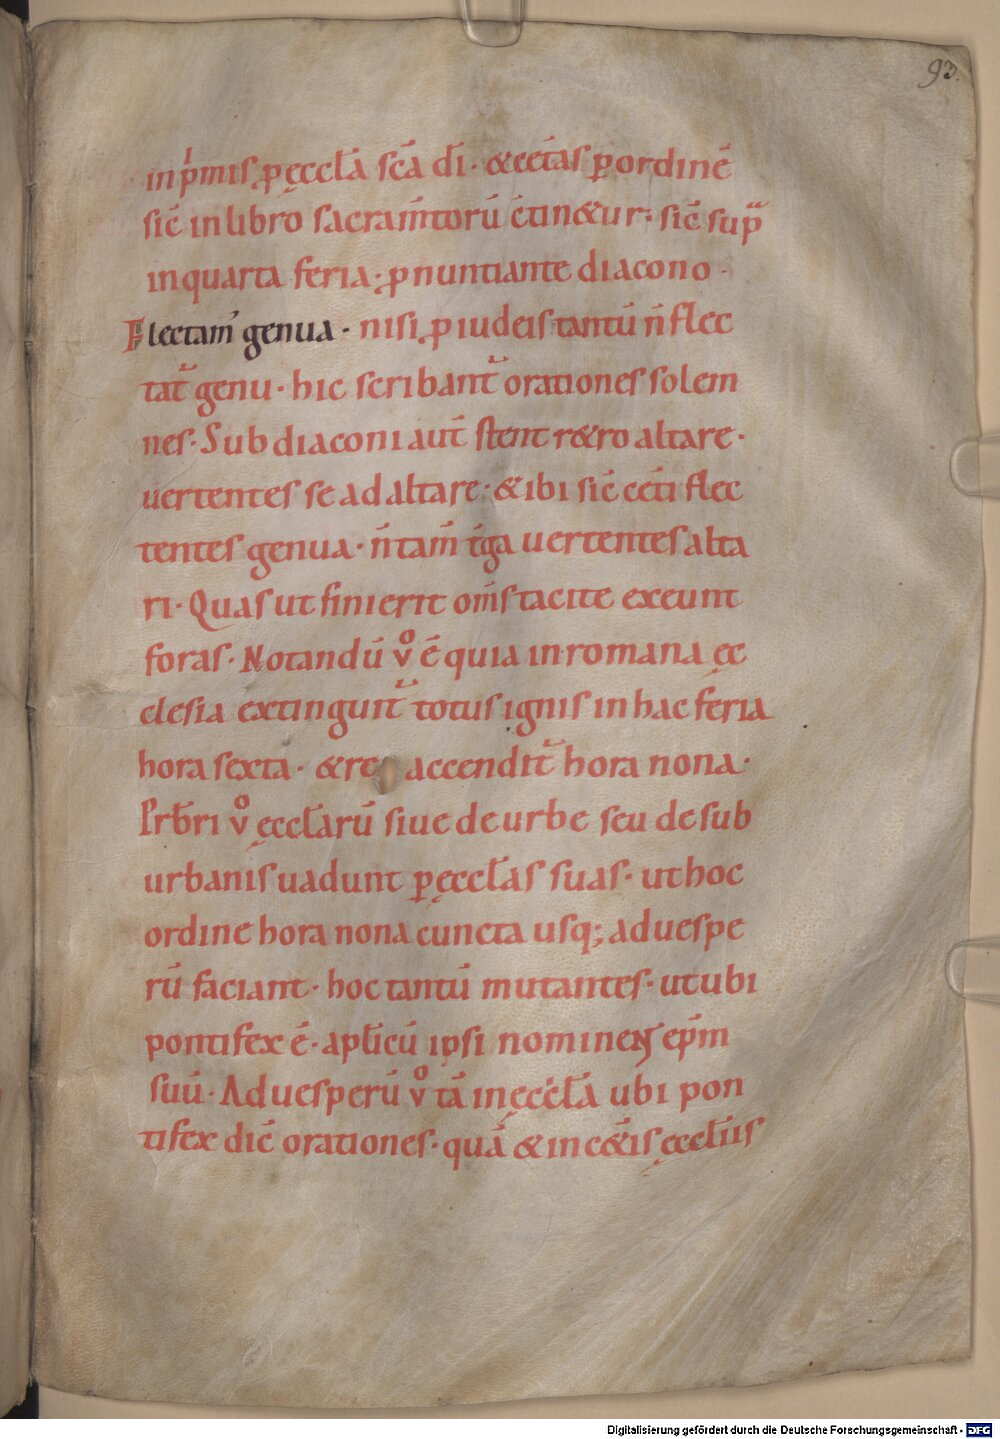 93.
inp̄mis p ęccl̄a sc̄a dī · & cet̄as p ordinē
sic̄ in libro sacram̄torū c̄tin&ur · sic̄ sup̄
in quarta feria · p nuntiante diacono ·
Flectam̄ genua · nisi p iudeis tantū n̄ flec
tat̄ genu · hic scribant̄ orationes solem
nes · Subdiaconi aut̄ stent r&ro altare ·
uertentes se ad altare · & ibi sic̄ cet̄i flec
tentes genua · n̄ tam̄ t̄ga uertentes alta
ri · Quas ut finierit om̄s tacite exeunt
foras · Notandū v̊ ē quia in romana ęc
clesia extinguit̄ totus ignis in hac feria
hora sexta · & re accendit̄ hora nona ·
Prb̄ri v̊ ęccl̄arū siue de urbe seu de sub
urbanis uadunt p ęccl̄as suas · ut hoc
ordine hora nona cuncta usq; ad uespe
rū faciant · hoc tantū mutantes · ut ubi
pontifex ē · apl̄icū ipsi nominent ep̄m
suū · Ad uesperū v̊ tā in ęccl̄a ubi pon
tifex dic̄ orationes · quā & in c&̄is ęccl̄iis
Digitalisierung gefördert durch die Deutsche Forschungsgemeinschaft - DFG